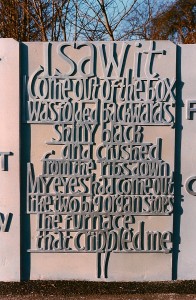 I saw it
Come out of the box
Was folded backwards
shiny black
and crushed
from the ribs down
My eyes had come out
like two big organ stops
The furnace
that crippled me